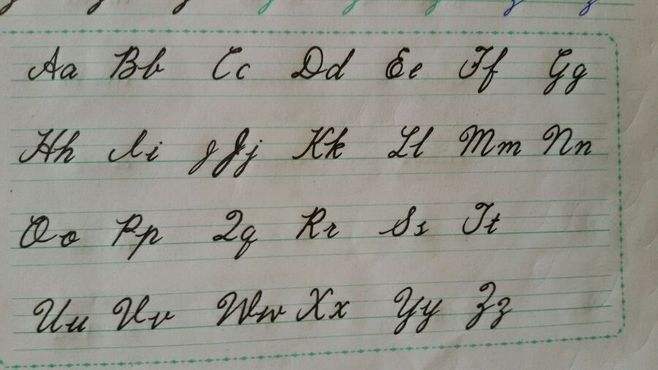 Aa Bb Cc Dd Ee Ff Gg
Hh Ii j Jj Kk Ll Mm Nn
Oo Pp Qq Rr Ss Tt
Uu Vv Ww Xx Yy Zz